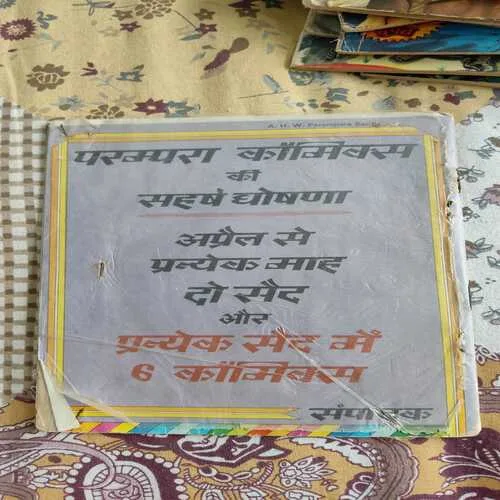 परम्परा कॉमिक्स
की
सहर्ष घोषणा
अप्रैल से
प्रत्येक माह
दो सैट
और
प्रत्येक सैट में
6 कॉमिक्स
संपादक